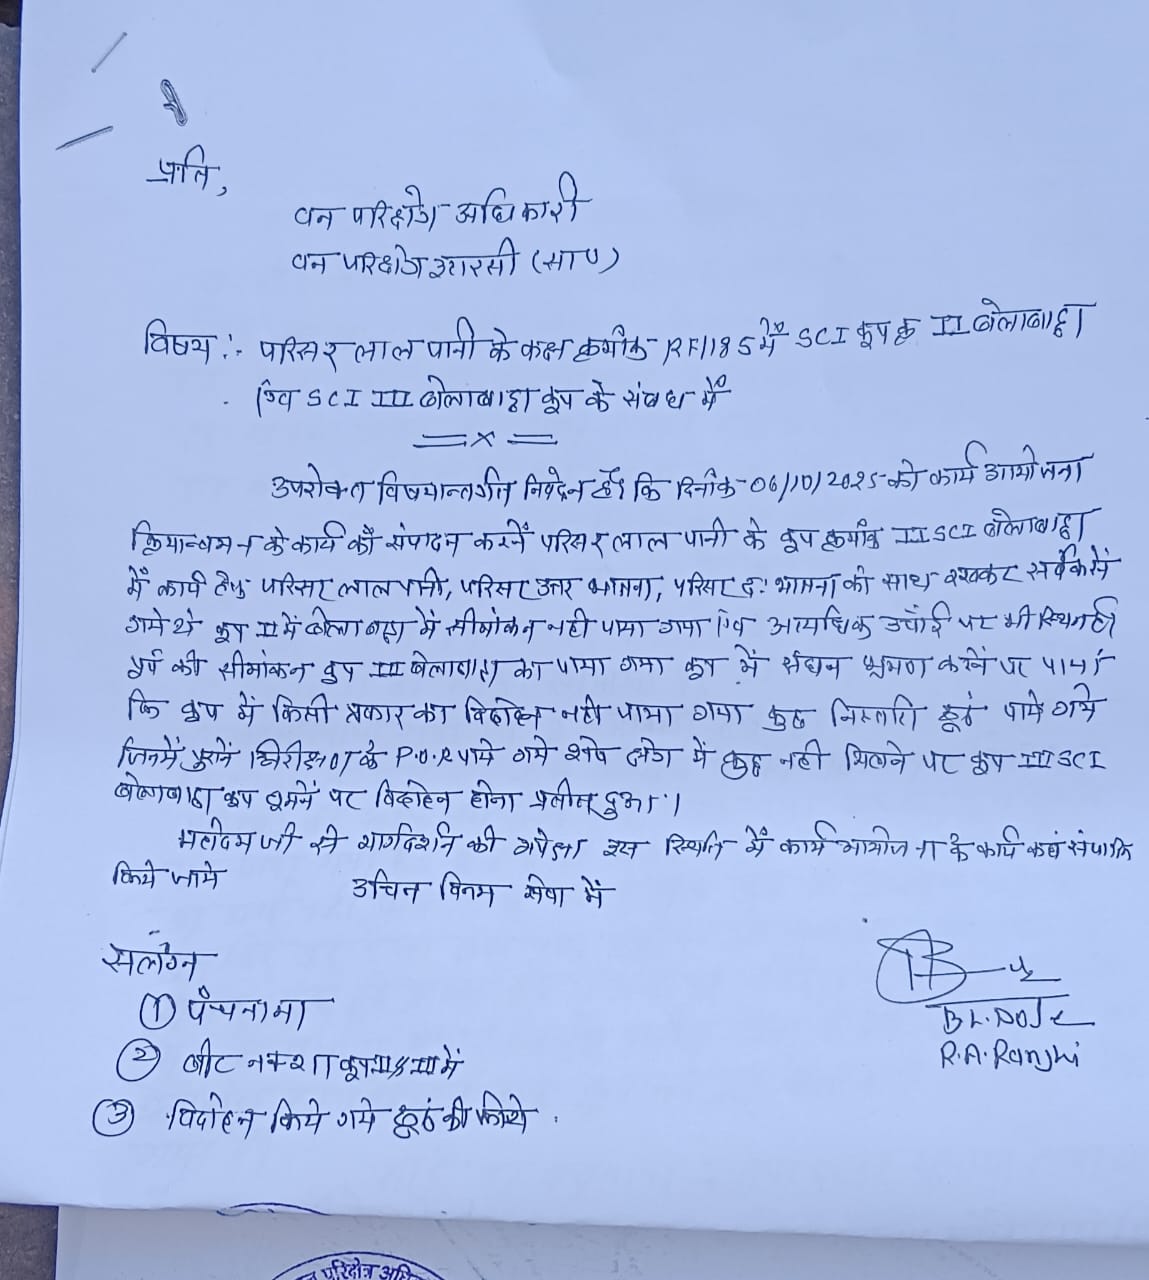 प्रति,
वन परिक्षेत्र अधिकारी
वन परिक्षेत्र (सा०)
विषय :- परिसर लाल पानी के कक्ष क्रमांक RF/185 में SCI कूप क्र II
एंव SCI III कूप के संबंध में
= x =
उपरोक्त विषयान्तर्गत निवेदन है कि दिनांक 06/10/2025 को कार्य आयोजना
क्रियान्वयन के कार्य को संपादन करनें परिसर लाल पानी के कूप क्रमांक II SCI
में कार्य हेतु परिसर लाल पानी, परिसर उत्तर, परिसर द: को साथ
गये थे कूप II में सीमांकन नही पाया गया एंव अत्यधिक उचाँई पर भी स्थित है।
पूर्व की सीमांकन कूप III का पाया गया कूप में सघन भ्रमण करनें पर पाया
कि कूप में किसी प्रकार का विदोहन नही पाया गया कुछ निस्तारी ठूठं पाये गये
जिनमें पुरानें के P.O.R पाये गये शेष क्षेत्र में कुछ नही मिलने पर कूप III SCI
कूप घूमनें पर विदोहन होना प्रतीत हुआ।
महोदय जी से मार्गदर्शन की अपेक्षा इस स्थिति में कार्य आयोजना के कार्य
किये जाये उचित विनय सेवा में
सलंग्न
(1) पँचनामा
(2) बीट नक्शा कूप II & III में
(3) विदोहन किये गये ठूठं की
R.A. Ranjhi
परिक्षेत्र अधि